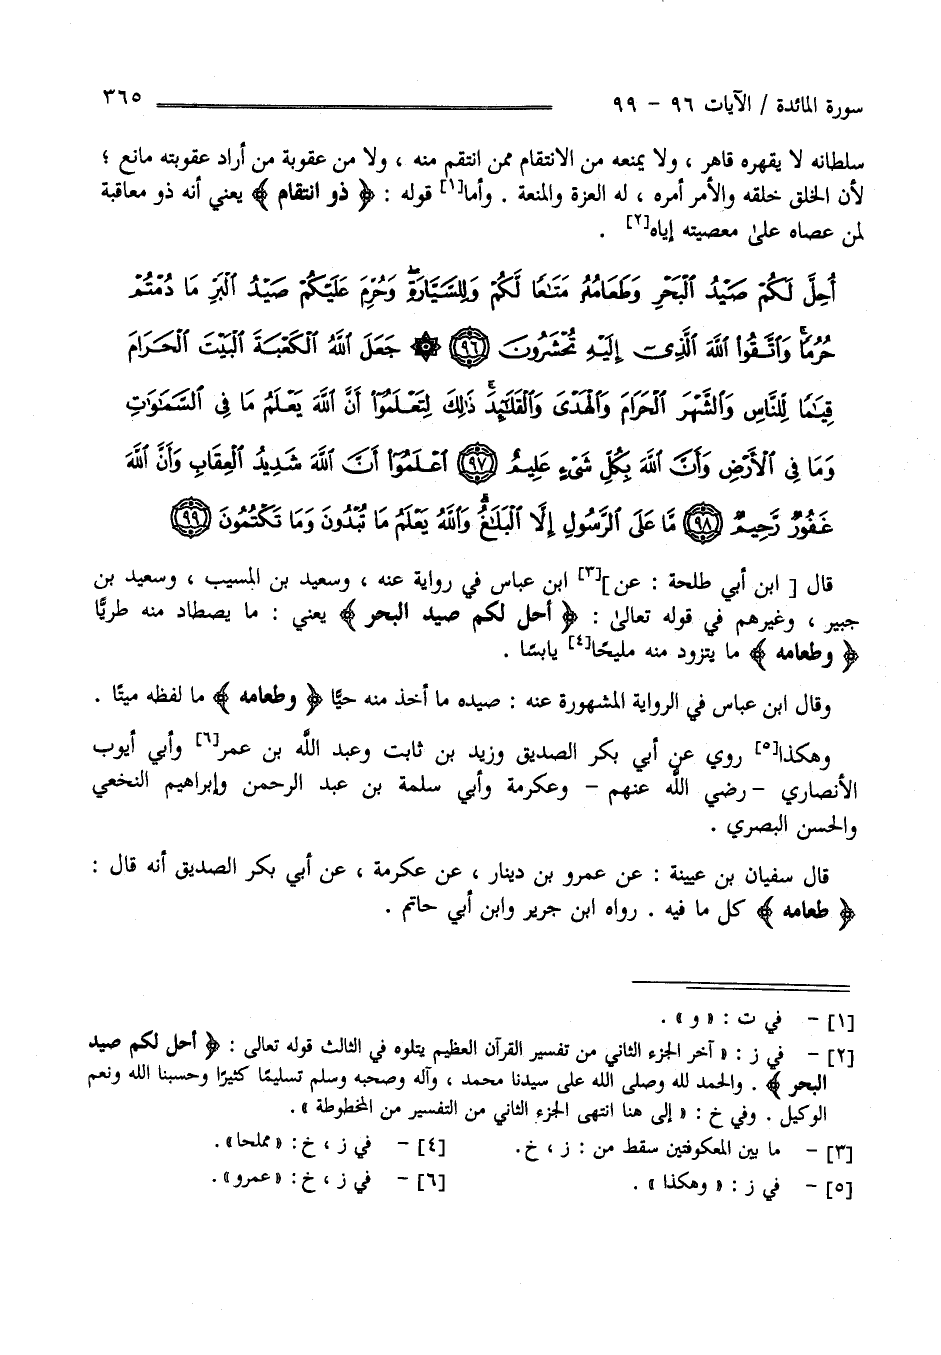 سورة المائدة / الآيات ٩٦ - ٩٩
٣٦٥
سلطانه لا يقهره قاهر ، ولا يمنعه من الانتقام ممن انتقم منه ، ولا من عقوبة من أراد عقوبته مانع ؛
لأن الخلق خلقه والأمر أمره ، له العزة والمنعة . وأما[١] قوله : ﴿ ذو انتقام ﴾ يعني أنه ذو معاقبة
لمن عصاه على معصيته إياه[٢] .
أُحِلَّ لَكُمْ صَيْدُ ٱلْبَحْرِ وَطَعَامُهُۥ مَتَٰعًا لَّكُمْ وَلِلسَّيَّارَةِۖ وَحُرِّمَ عَلَيْكُمْ صَيْدُ ٱلْبَرِّ مَا دُمْتُمْ
حُرُمًاۗ وَٱتَّقُوا۟ ٱللَّهَ ٱلَّذِىٓ إِلَيْهِ تُحْشَرُونَ ﴿٩٦﴾ ۞ جَعَلَ ٱللَّهُ ٱلْكَعْبَةَ ٱلْبَيْتَ ٱلْحَرَامَ
قِيَٰمًا لِّلنَّاسِ وَٱلشَّهْرَ ٱلْحَرَامَ وَٱلْهَدْىَ وَٱلْقَلَٰٓئِدَۚ ذَٰلِكَ لِتَعْلَمُوٓا۟ أَنَّ ٱللَّهَ يَعْلَمُ مَا فِى ٱلسَّمَٰوَٰتِ
وَمَا فِى ٱلْأَرْضِ وَأَنَّ ٱللَّهَ بِكُلِّ شَىْءٍ عَلِيمٌ ﴿٩٧﴾ ٱعْلَمُوٓا۟ أَنَّ ٱللَّهَ شَدِيدُ ٱلْعِقَابِ وَأَنَّ ٱللَّهَ
غَفُورٌ رَّحِيمٌ ﴿٩٨﴾ مَّا عَلَى ٱلرَّسُولِ إِلَّا ٱلْبَلَٰغُۗ وَٱللَّهُ يَعْلَمُ مَا تُبْدُونَ وَمَا تَكْتُمُونَ ﴿٩٩﴾
قال [ ابن أبي طلحة : عن ][٣] ابن عباس في رواية عنه ، وسعيد بن المسيب ، وسعيد بن
جبير ، وغيرهم في قوله تعالى : ﴿ أحل لكم صيد البحر ﴾ يعني : ما يصطاد منه طريًّا
﴿ وطعامه ﴾ ما يتزود منه مليحًا[٤] يابسًا .
وقال ابن عباس في الرواية المشهورة عنه : صيده ما أخذ منه حيًّا ﴿ وطعامه ﴾ ما لفظه ميتًا .
وهكذا[٥] روي عن أبي بكر الصديق وزيد بن ثابت وعبد اللَّه بن عمر[٦] وأبي أيوب
الأنصاري - رضي اللَّه عنهم - وعكرمة وأبي سلمة بن عبد الرحمن وإبراهيم النخعي
والحسن البصري .
قال سفيان بن عيينة : عن عمرو بن دينار ، عن عكرمة ، عن أبي بكر الصديق أنه قال :
﴿ طعامه ﴾ كل ما فيه . رواه ابن جرير وابن أبي حاتم .
[١] - في ت : « و » .
[٢] - في ز : « آخر الجزء الثاني من تفسير القرآن العظيم يتلوه في الثالث قوله تعالى : ﴿ أحل لكم صيد
البحر ﴾ . والحمد لله وصلى الله على سيدنا محمد ، وآله وصحبه وسلم تسليمًا كثيرًا وحسبنا الله ونعم
الوكيل . وفي خ : « إلى هنا انتهى الجزء الثاني من التفسير من المخطوطة » .
[٣] - ما بين المعكوفتين سقط من : ز ، خ . [٤] - في ز ، خ : « مملحا» .
[٥] - في ز : « وهكذا » . [٦] - في ز ، خ : «عمرو» .